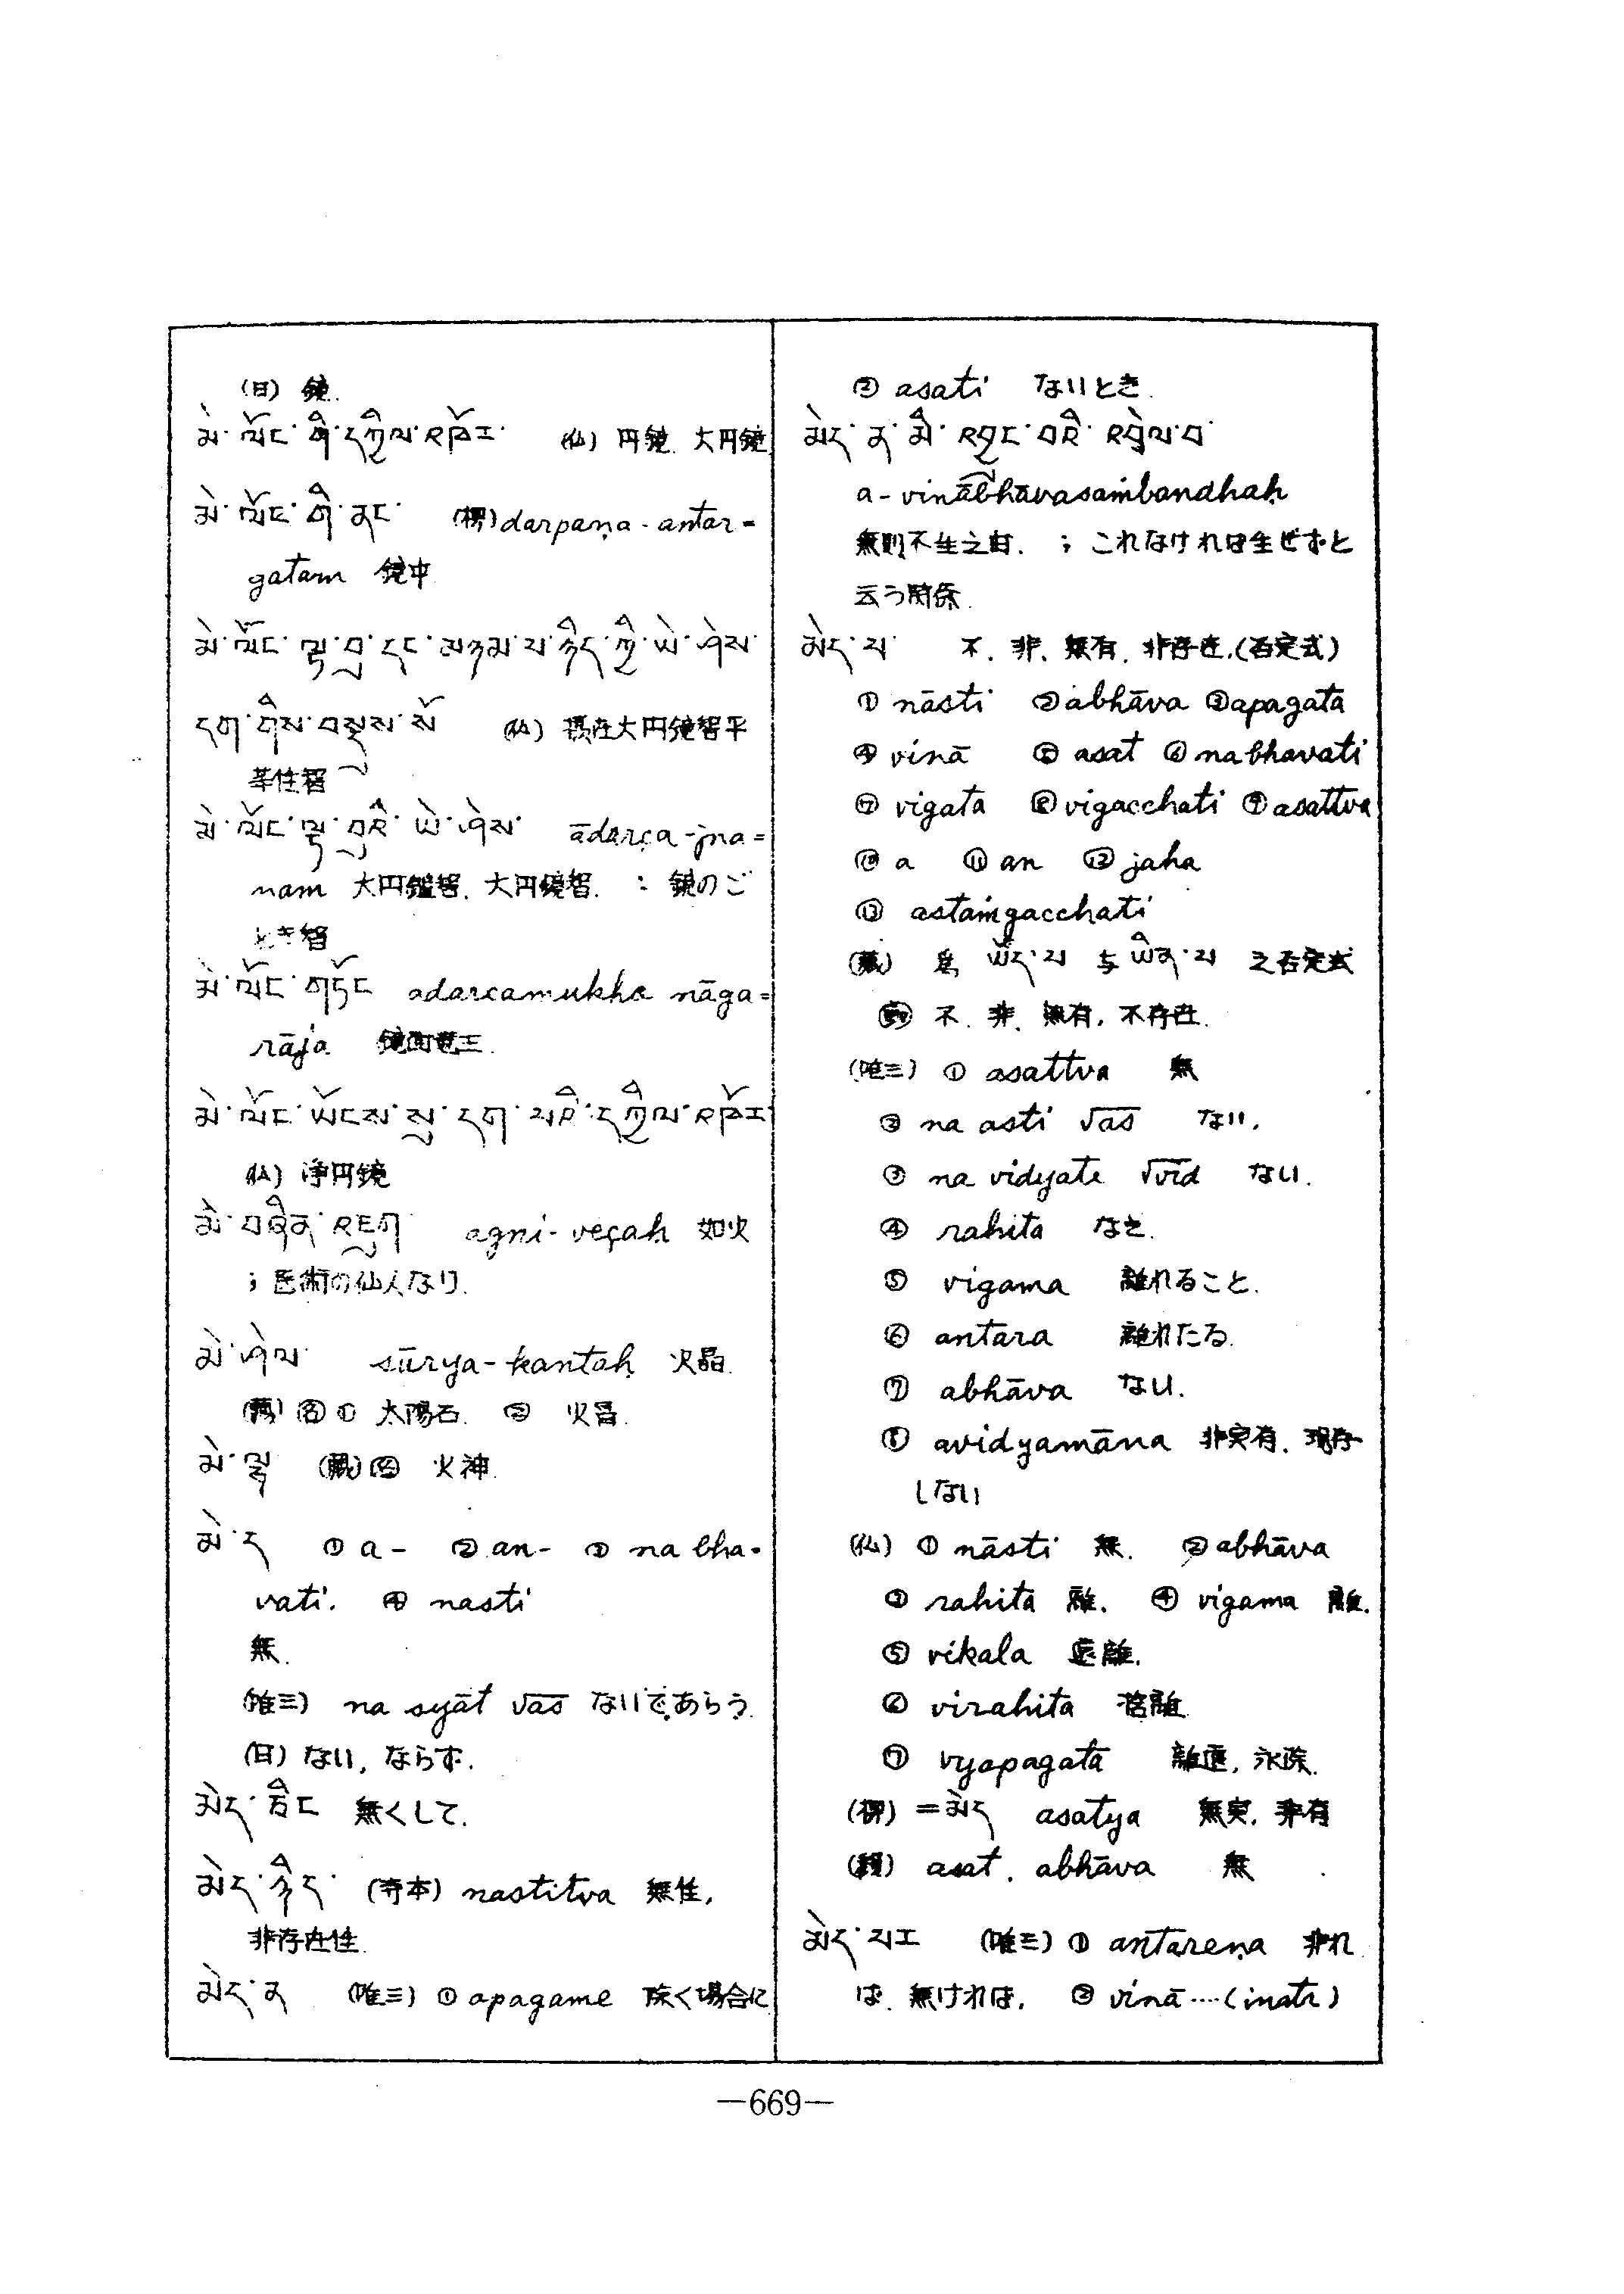 (日) 鏡.
མེ་ལོང་གི་དཀྱིལ་འཁོར་ (仏) 円鏡. 大円鏡
མེ་ལོང་གི་ནང་ (樗) darpaṇa-antar=
gatam 鏡中
མེ་ལོང་ལྟ་བུ་དང་མཉམ་པ་ཉིད་ཀྱི་ཡེ་ཤེས་
དག་གིས་བསྡུས་སོ (仏) 摂在大円鏡智平
等性智
མེ་ལོང་ལྟ་བུའི་ཡེ་ཤེས་ ādarça-jna=
nam 大円鑑智. 大円鏡智. : 鏡のご
とき智
མེ་ལོང་གདོང adarcamukha nāga=
rāja 鏡面竜王.
མེ་ལོང་ཡོངས་སུ་དག་པའི་དཀྱིལ་འཁོར
(仏) 浄円鏡
མེ་བཞིན་འཇུག agni-veçaḥ 如火
; 医術の仙人なり.
མེ་ཤེལ་ sūrya-kantaḥ 火晶.
(蔵) 名 ① 太陽石. ② 火晶.
མེ་ལྷ (蔵) 名 火神.
མེ་ད ① a- ② an- ③ na bha-
vati. ④ nasti
無.
(唯三) na syāt √as ないであらう.
(日) ない, ならず.
མེད་ཅིང 無くして.
མེད་ཉིད་ (寺本) nastitva 無性,
非存在性.
མེད་ན (唯三) ① apagame 除く場合に
② asati ないとき.
མེད་ན་མི་འབྱུང་བའི་འབྲེལ་བ་
a-vinābhāvasaṁbandhaḥ
無則不生之. ; これなければ生ぜずと
云う関係.
མེད་པ་ 不. 非. 無有. 非存在. (否定式)
① nāsti ② abhāva ③ apagata
④ vinā ⑤ asat ⑥ na bhavati
⑦ vigata ⑧ vigacchati ⑨ asattva
⑩ a ⑪ an ⑫ jaha
⑬ astaṁgacchati
(蔵) 為 ཡོད་པ 与 ཡིན་པ 之否定式
不. 非. 無有. 不存在.
(唯三) ① asattva 無
② na asti √as ない.
③ na vidyate √vid ない.
④ rahita なき.
⑤ vigama 離れること.
⑥ antara 離れたる.
⑦ abhāva ない.
⑧ avidyamāna 非実有. 現存
しない
(仏) ① nāsti 無. ② abhāva
③ rahita 離. ④ vigama 離.
⑤ vikala 遠離.
⑥ virahita 離
⑦ vyapagata 離, 永除.
(樗) =མེད asatya 無実. 非有
asat. abhāva 無
མེད་པར (唯三) ① antareṇa 非れ
ば. 無ければ. ② vinā ····(inatr)
—669—